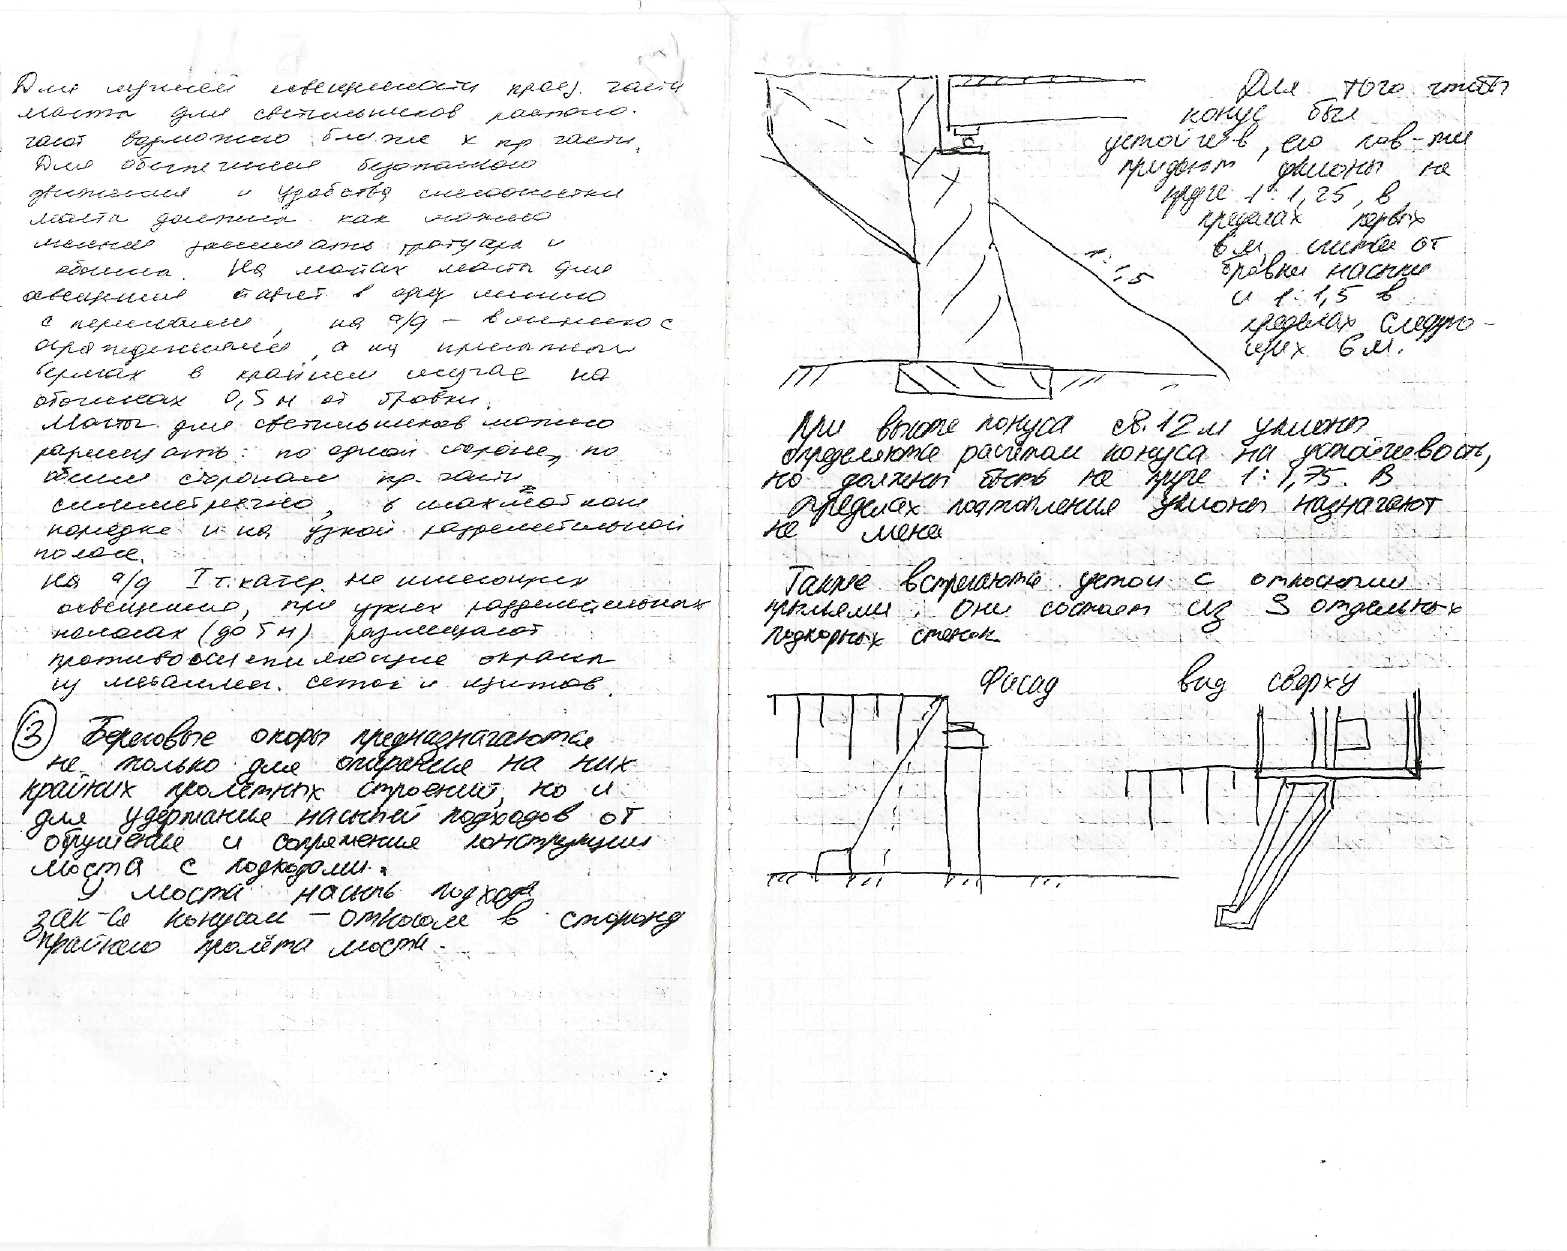 Для лучшей освещенности проез. части
мачты для светильников распола-
гают возможно ближе к пр части.
Для обеспечения безопасного
движения и удобства снегоочистки
мачты должны как можно
менее занимать тротуары и
обочины. На мостах мачты для
освещения ставят в одну линию
с перилами, на а/д – в линию с
ограждениями, а на присыпных
бермах в крайнем случае на
обочинах 0,5 м от бровки.
Мачты для светильников можно
размещать: по одной стороне, по
обеим сторонам пр. части
симметрично, в шахматном
порядке и на узкой разделительной
полосе.
На а/д I т. катег. не имеющих
освещения, при узких разделительных
полосах (до 5 м) размещают
противоослепляющие экраны
из металлич. сеток и щитов.
3 Береговые опоры предназначаются
не только для опирания на них
крайних пролетных строений, но и
для удержания насыпей подходов от
обрушения и сопряжения конструкции
моста с подходами.
У моста насыпь подхода
зак-ся конусом – откосом в сторону
крайнего пролёта моста.
Для того чтобы
конус был
устойчев, его пов-ти
придают уклоны не
круче 1:1,25, в
пределах первых
6 м, считая от
бровки насыпи
и 1:1,5 в
пределах следую-
щих 6 м.
1:1,5
При высоте конуса св. 12 м уклоны
определяются расчетом конуса на устойчивость,
но должны быть не круче 1:1,75. В
пределах подтопления уклоны назначают
не менее
Также встречаются устои с откосными
крыльями. Они состоят из 3 отдельных
подпорных стенок
Фасад вид сверху